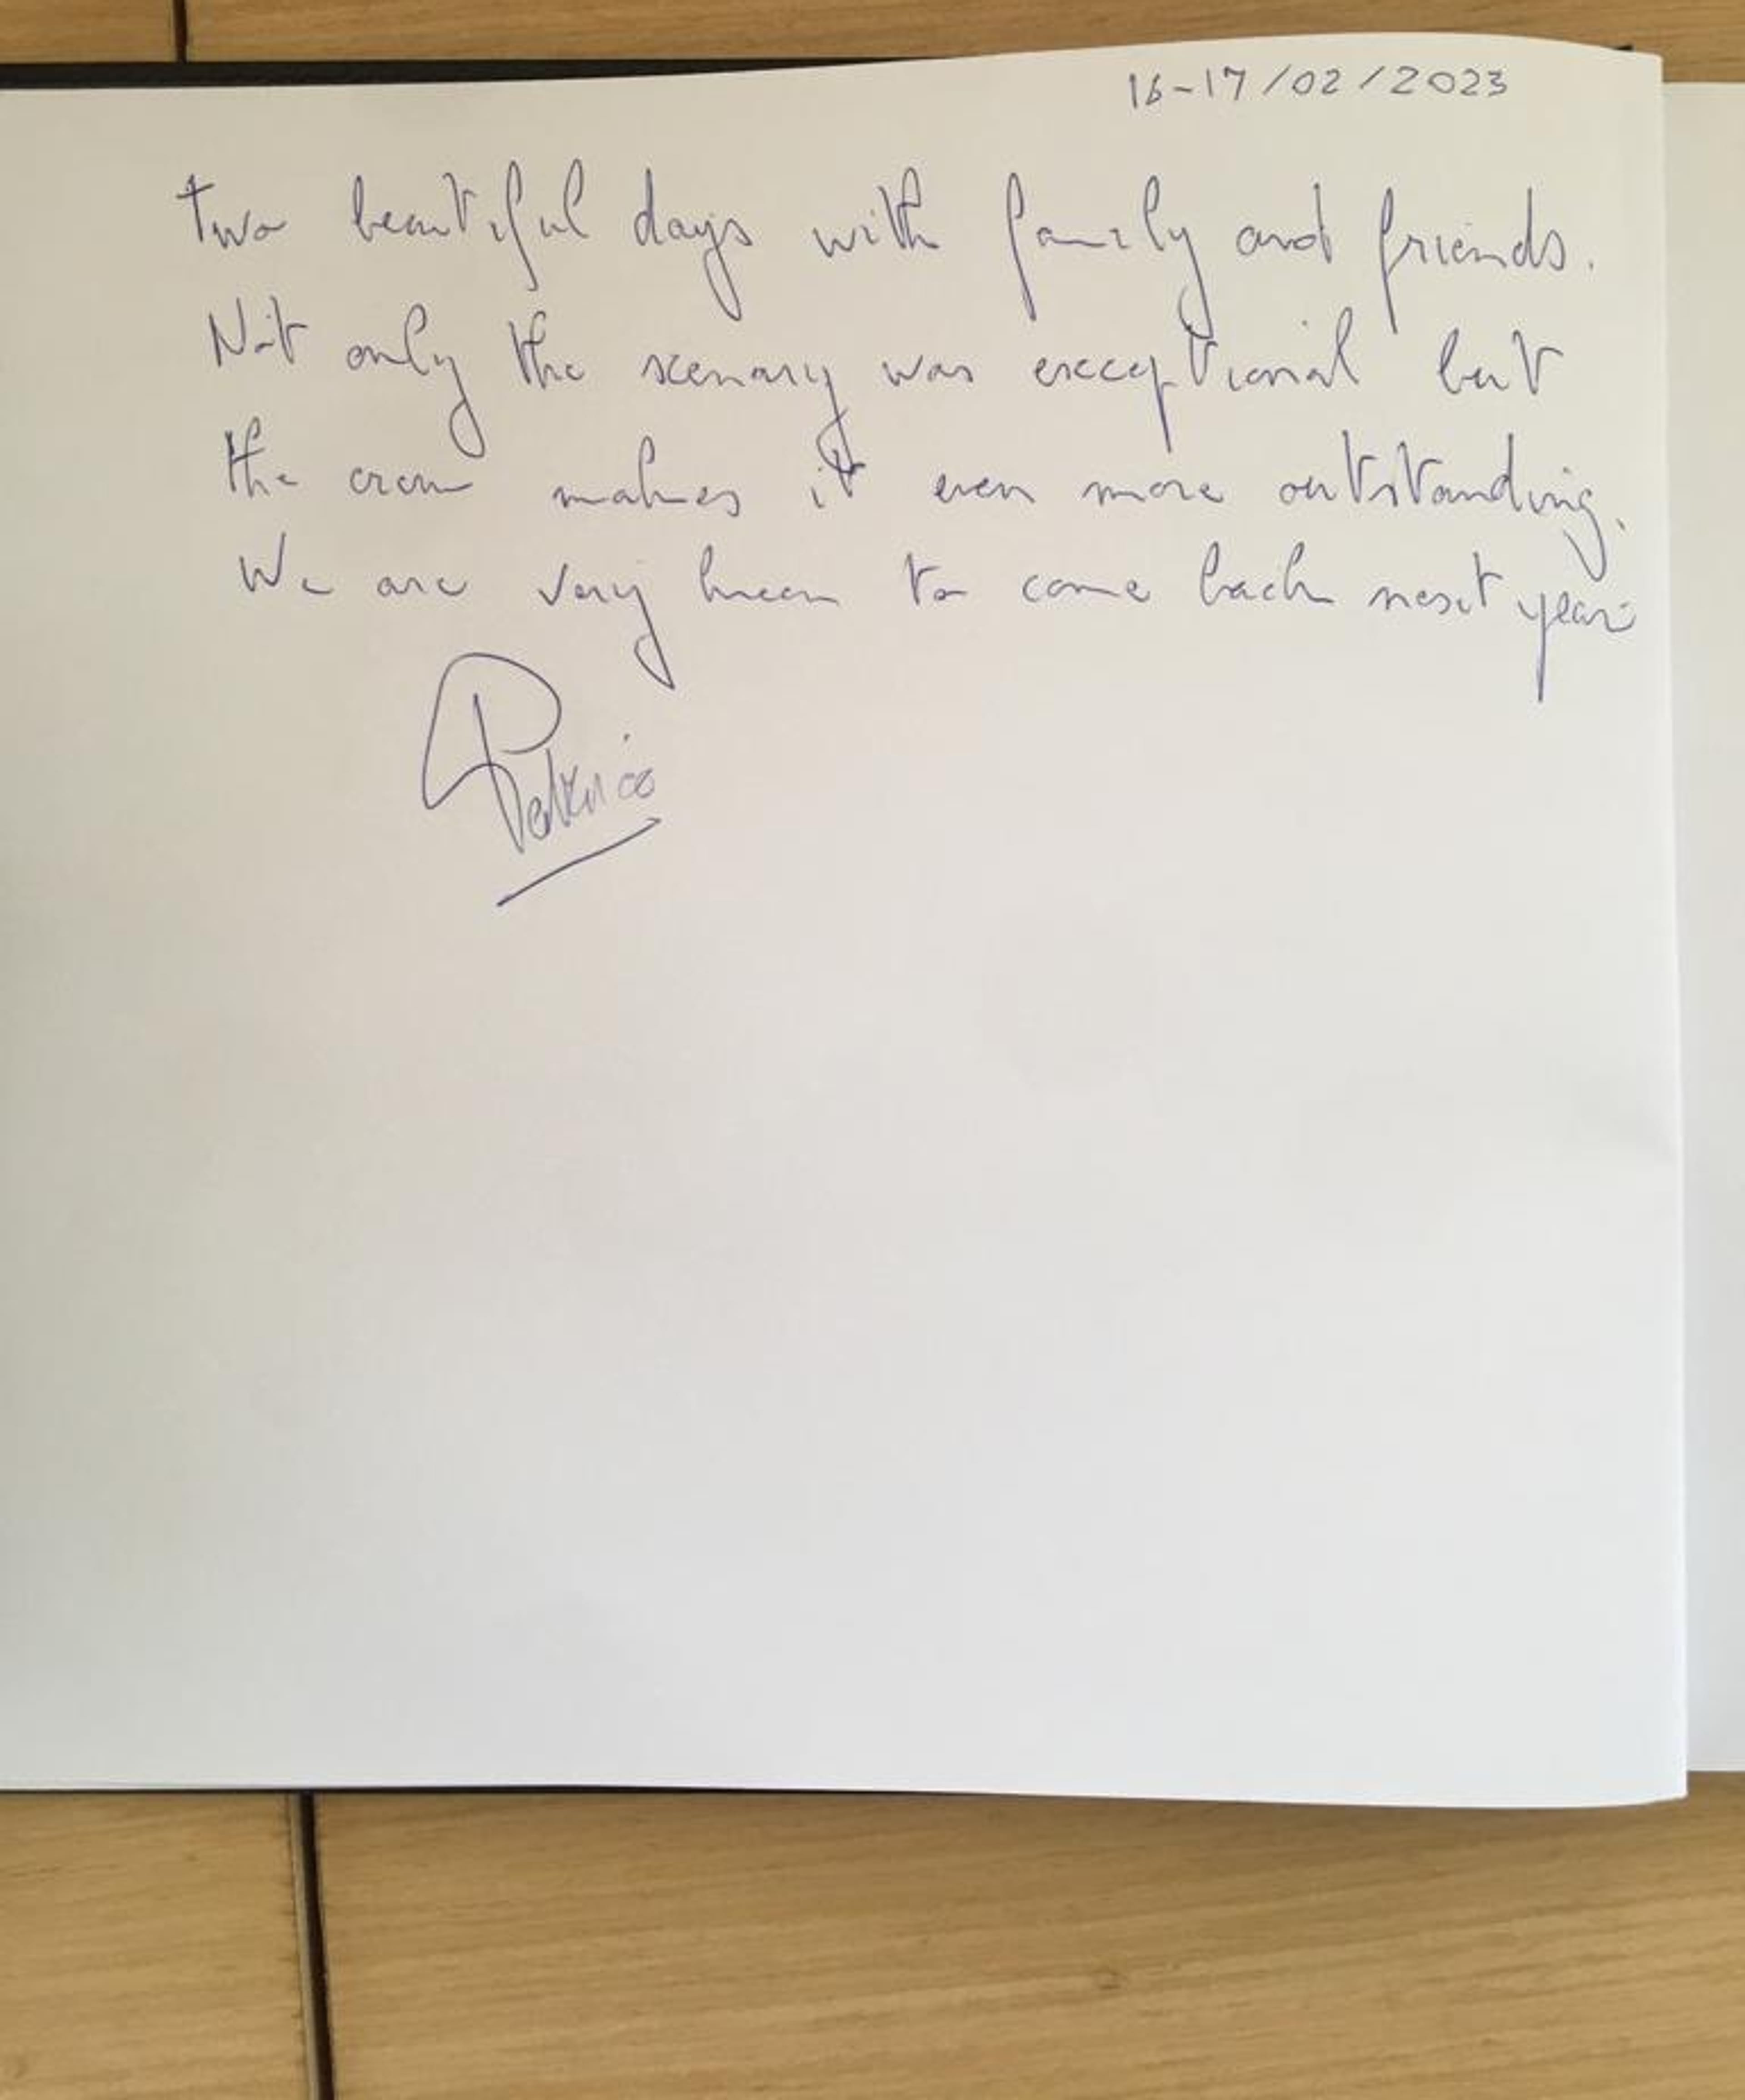 16-17/02/2023
Two beautiful days with family and friends.
Not only the scenary was exceptional but
the crew makes it even more outstanding.
We are very keen to come back next year